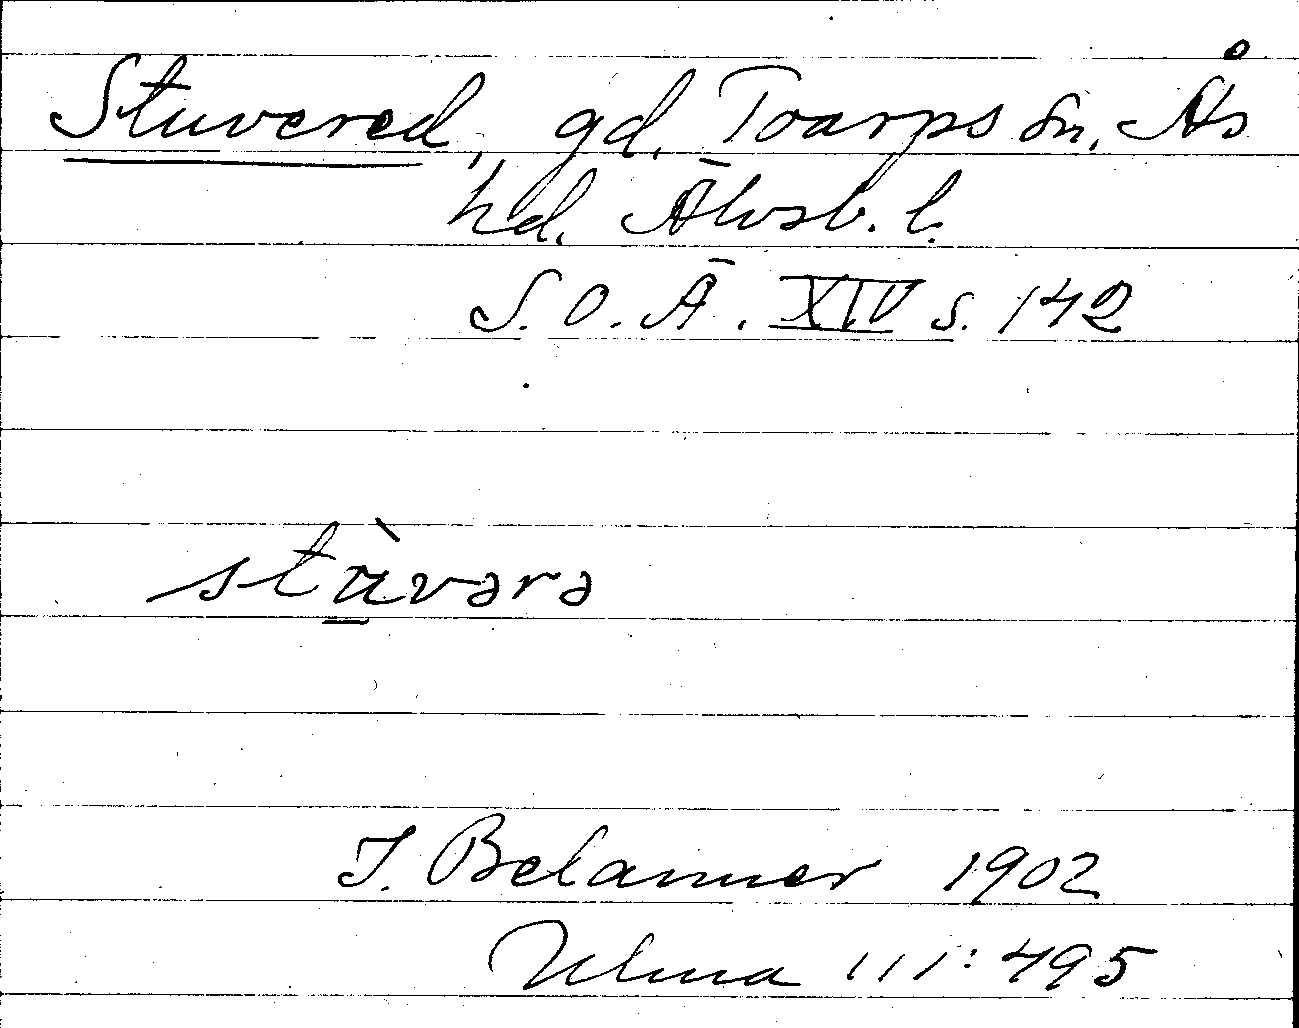 Stuvered, gd, Toarps sn, Ås
hd. Älvsb. l.
S.O.Ä. XIV s. 142
stù̱vərə
J. Belanner 1902
Ulma 111:495